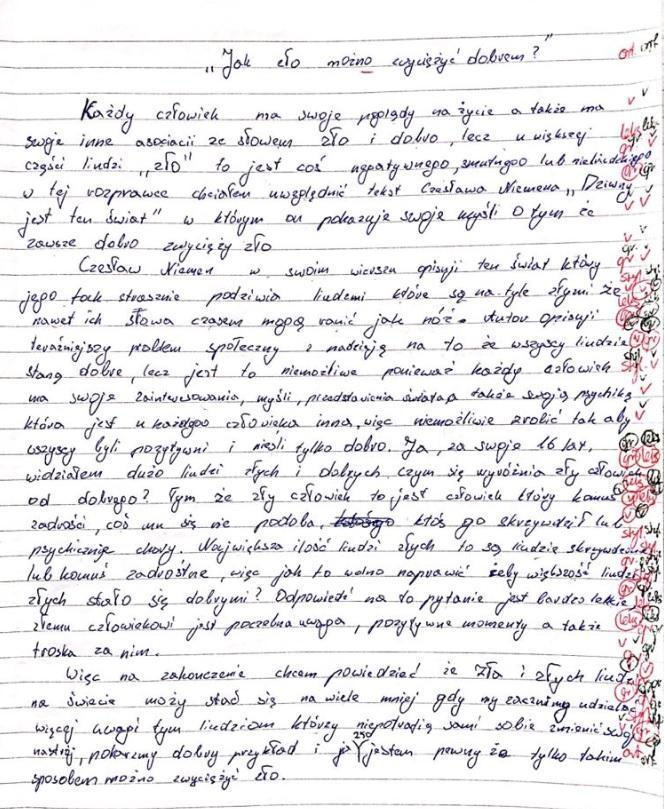 „Jak zło możno zwyciężyć dobrem?" ort. int.
Każdy człowiek ma swoje poglądy na życie a także ma
swoje inne asociacii ze słowem zło i dobro, lecz u większej
części liudzi „zło" to jest coś negatywnego, smutngoo lub
w tej rozprawce chciałem uwzględnić tekst Czesława Niemena „Dziwny
jest ten świat" w którym on pokazuje swoje myśli o tym że
zawsze dobro zwycięży zło
Czesław Niemen w swoim wierszu opisyji ten świat który
jego tak strasznie podziwia liudzmi które są na tyle złymi że
nawet ich słowa czasem mogą ranić jak nóż. Autor opisyji
teraźniejszy problem społeczny z nadzieją na to że wszyscy liudzie
staną dobre, lecz jest to niemożliwe ponieważ każdy człowiek
ma swoje zaintwesowania, myśli, przedstawienia świata a także swoją psychikę
która jest u każdego człowieka inna, więc niemożliwie zrobić tak aby
wszyscy byli pozytywni i nieśli tylko dobro. Ja, za swoje 16 lat,
widziałem dużo liudzi złych i dobrych czym się wyróżnia zły człowiek
od dobrego? Tym że zły człowiek to jest człowiek który komuś
zadrości, coś mu się nie podoba, ktoś go skrzywdził lub
psychicznie chory. Największa ilość liudzi złych to są liudzie
lub komuś zadrostne, więc jak to wolno naprawić żeby większość liudzi
złych stało się dobrymi? Odpowiedź na to pytanie jest bardzo lekkie
złemu człowiekowi jest poczebna uwaga, pozytywne momenty a także
troska za nim.
Więc na zakonczenie chcem powiedzieć że zła i złych liudzi
na świecie moży stać się na wiele mniej gdy my zacznimy udzielać
więcej uwagi tym liudziom którzy niepotradią sami sobie zmienić swój
nastrój, pokarzmy dobry przykład i ja 250 jestem pewny że tylko takim
sposobem można zwyciężyć zło.